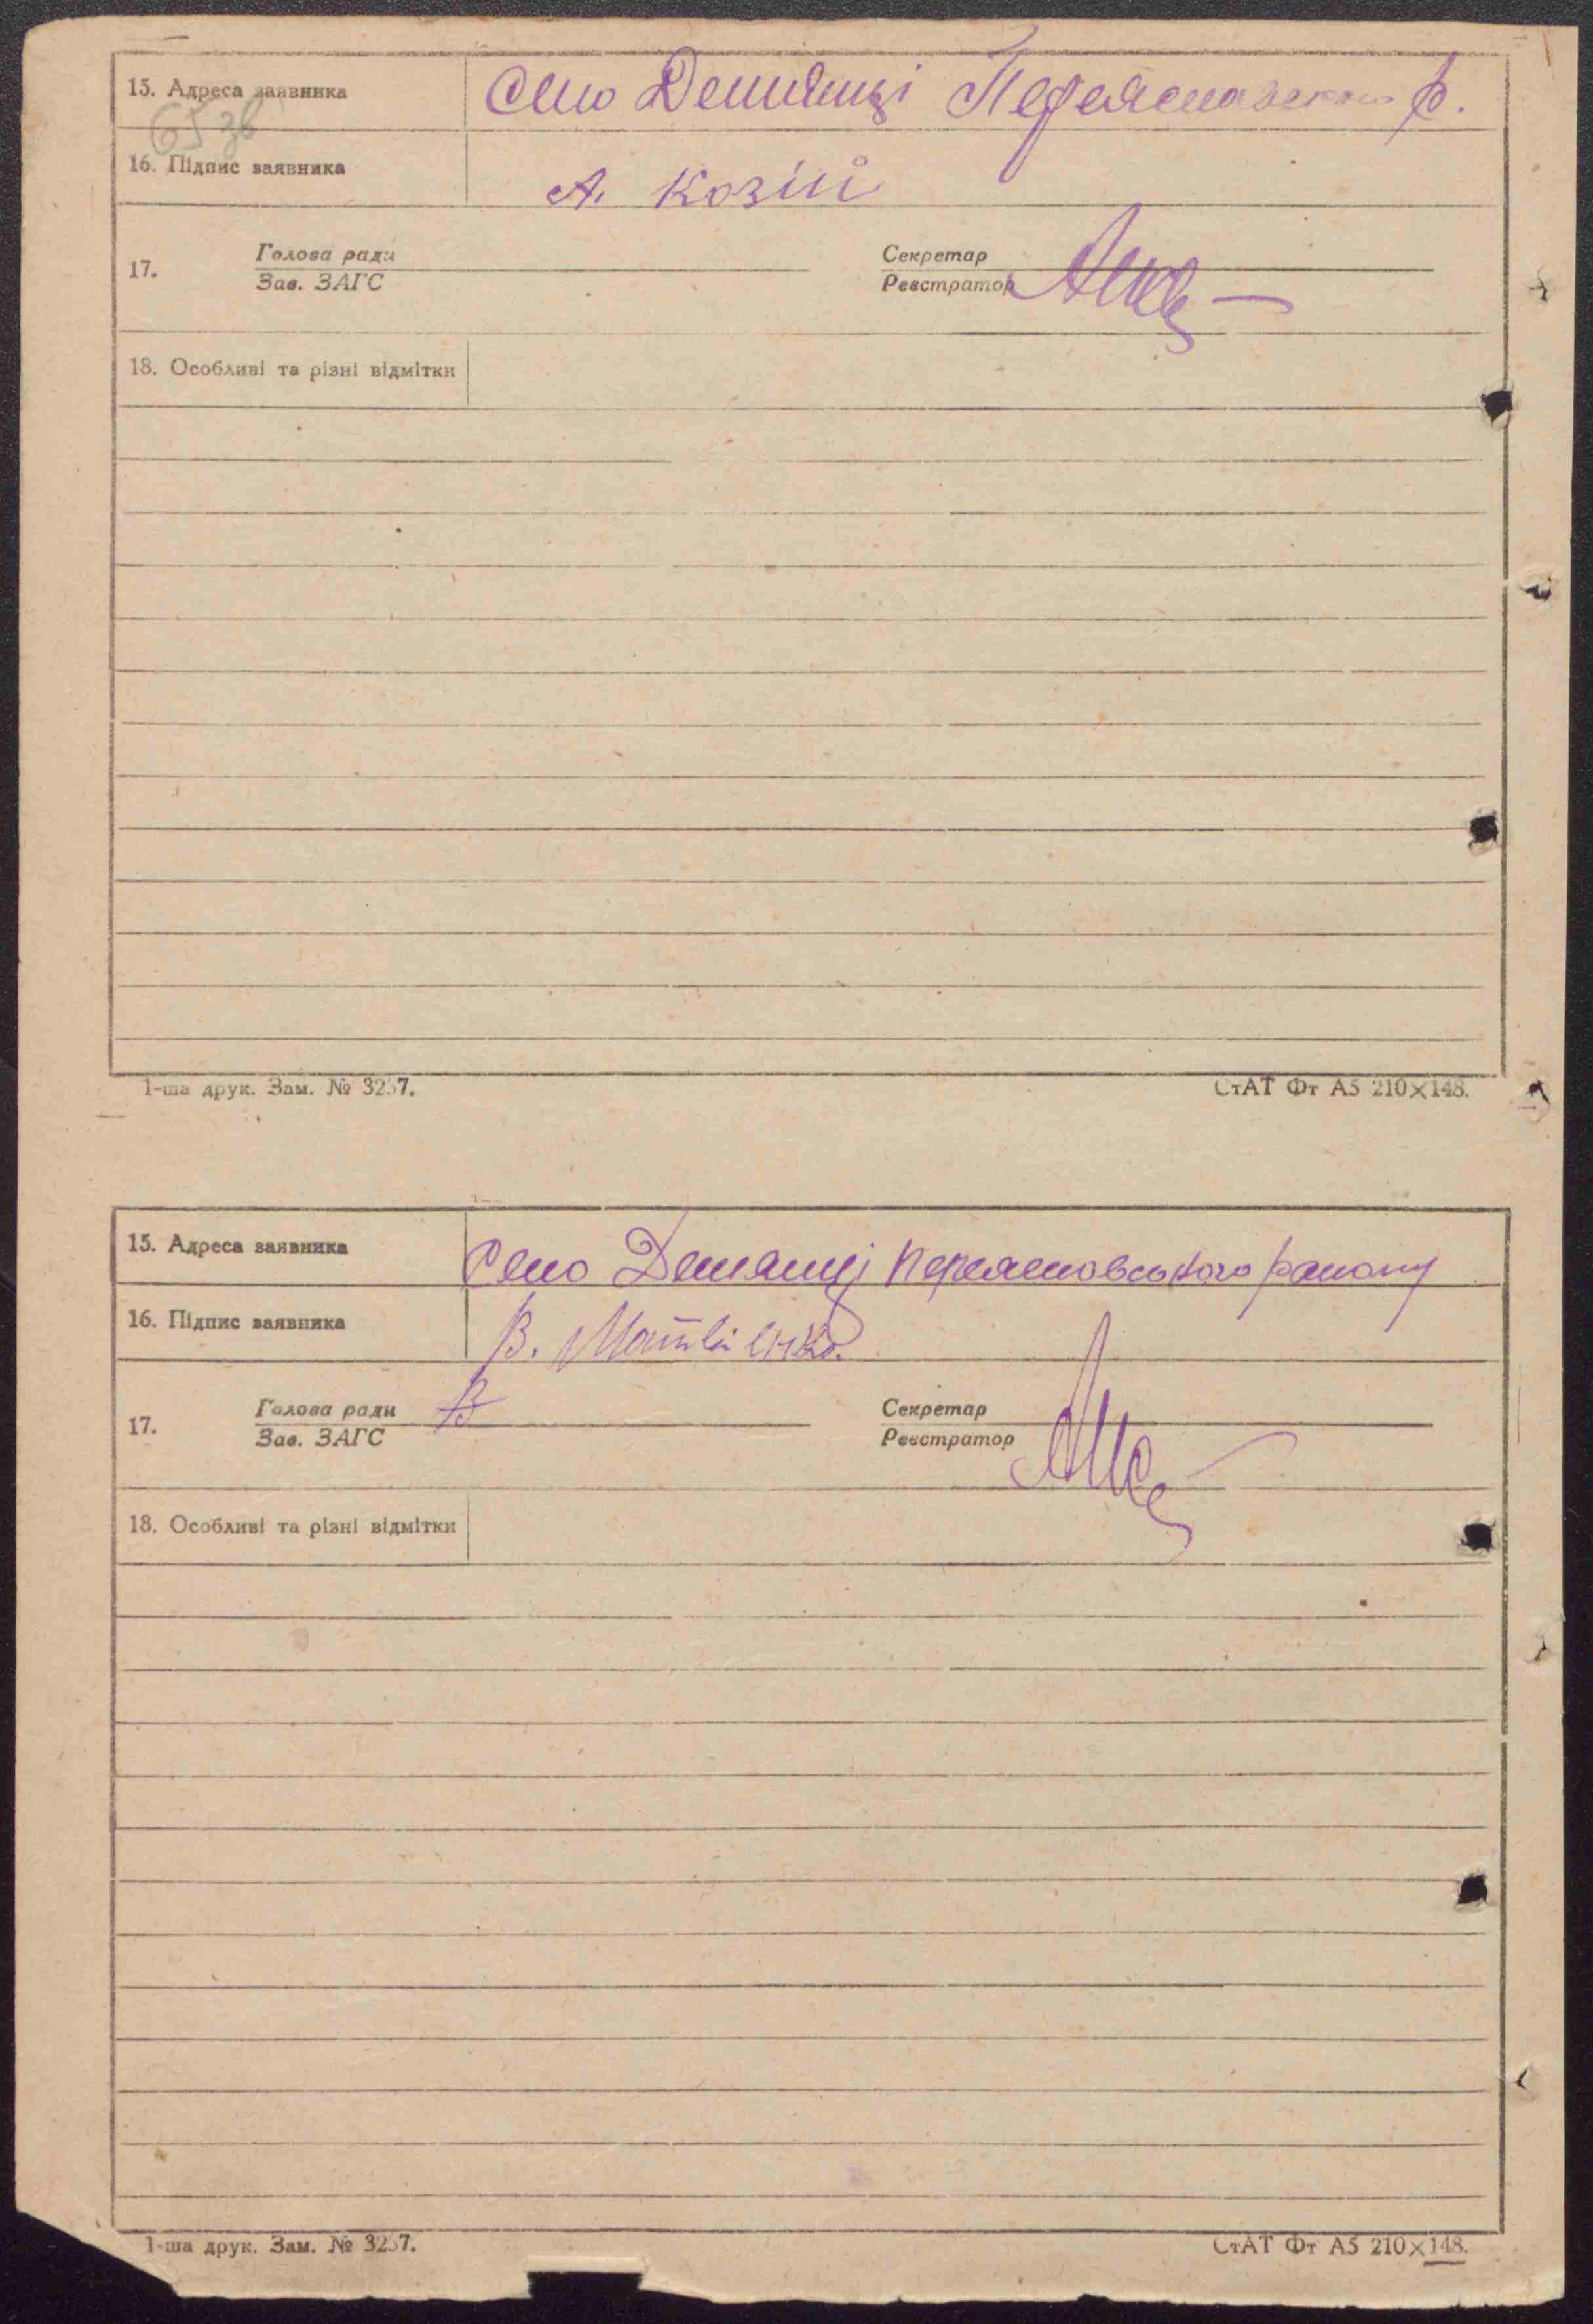 15. Адреса заявника Село Демянці Переяславского р.
65 зв
16. Підпис заявника А. Козій
17. Голова ради Секретар
Зав. ЗАГС Реєстратор
18. Особливі та різні відмітки
1-ша друк. Зам. № 3257.
СтАТ Фт А5 210×148.
15. Адреса заявника Село Демянці Переяславського району
16. Підпис заявника В. Матвієнко.
17. Голова ради В Секретар
Зав. ЗАГС Реєстратор
18. Особливі та різні відмітки
1-ша друк. Зам. № 3257.
СтАТ Фт А5 210×148.